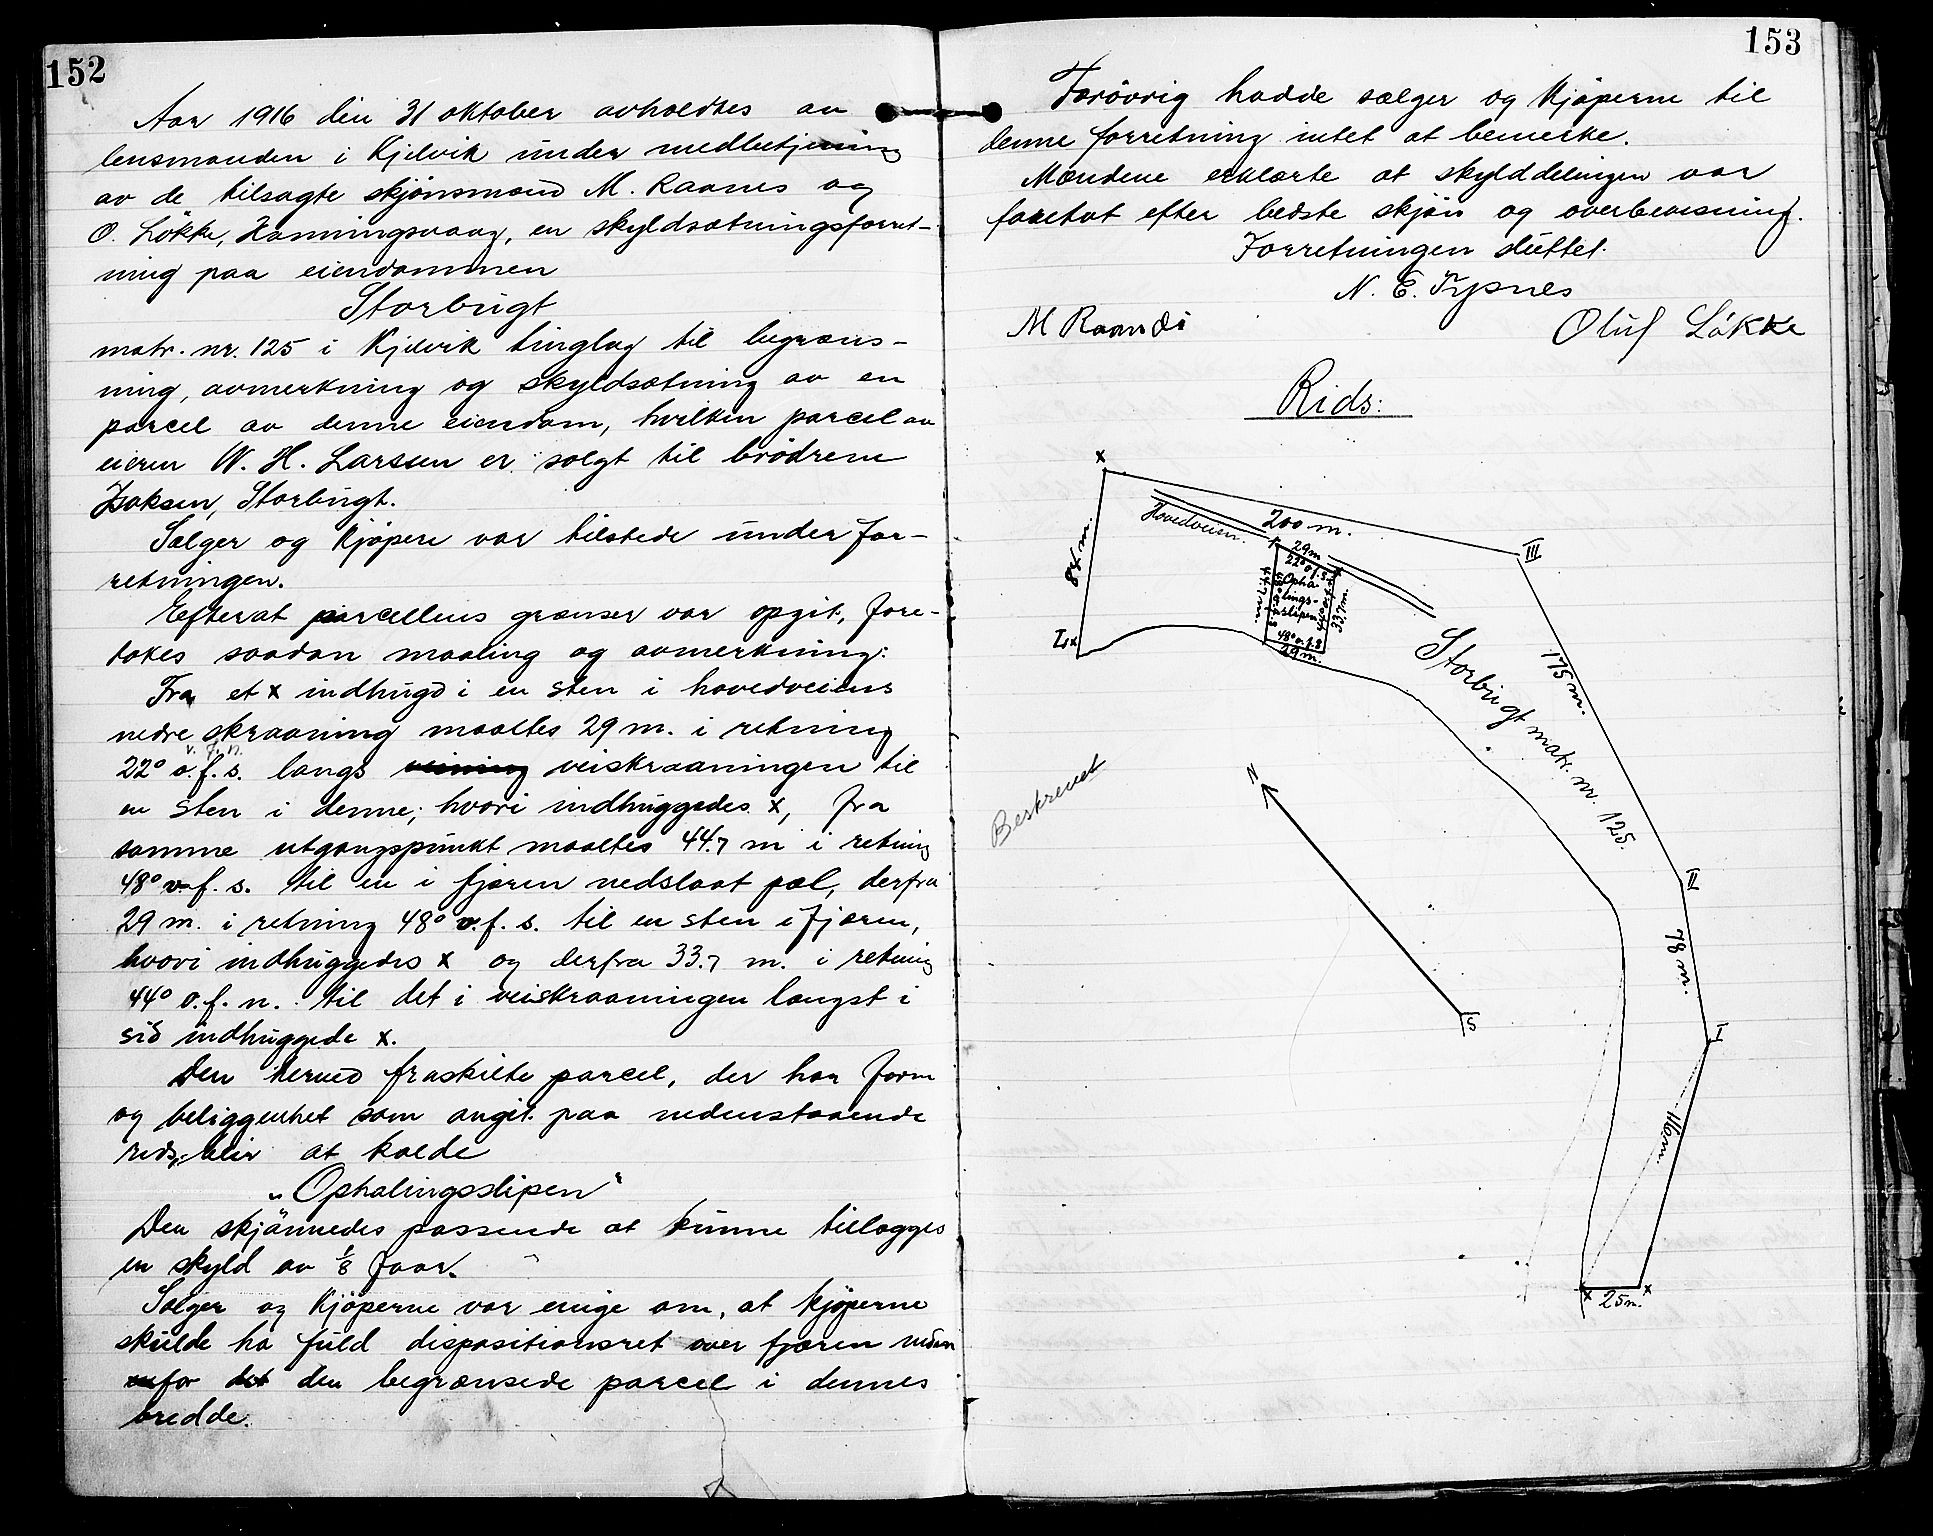 152
Aar 1916 den 31 oktober avholdtes av
lensmanden i Kjelvik under medbetjening
av de tilsagte skjönsmænd M. Raanes og
O. Lökke, Honningsvaag, en skyldsætningsforret-
ning paa eiendommen
Storbugt
matr. nr. 125 i Kjelvik tinglag til begræns-
ning, avmerkning og skyldsætning av en
parcel av denne eiendom, hvilken parcel av
eieren W. H. Larsen er solgt til brödrene
Isaksen, Storbugt.
Sælger og kjöpere var tilstede under for-
retningen.
Efterat parcellens grænser var opgit, fore-
tokes saadan maaling og avmerkning:
Fra et x indhugd i en sten i hovedveiens
nedre skraaning maaltes 29 m. i retning
v. f. n.
22° o. f. s. langs veiskraaningen til
en sten i denne; hvori indhuggedes x, fra
samme utgangspunkt maaltes 44.7 m i retning
48° v. f. s. til en i fjæren nedslaat pæl, derfra
29 m. i retning 48° v. f. s. til en sten i fjæren,
hvori indhuggedes x og derfra 33.7 m. i retning
44° o. f. n. til det i veiskraaningen længst i
sid indhuggede x.
Den herved fraskilte parcel, der har form
og beliggenhet som angit paa nedenstaaende
rids, blir at kalde
„Ophalingsslipen"
Den skjönnedes passende at kunne tillægges
en skyld av 1/8 faar.
Sælger og kjöperne var enige om, at kjöperne
skulde ha fuld dispositionsret over fjæren neden
for den begrænsede parcel i dennes
bredde.
153
Forövrig hadde sælger og kjöperne til
denne forretning intet at bemerke.
Mændene erklærte at skylddelingen var
foretat efter bedste skjön og overbevisning.
Forretningen sluttet.
N. E. Fypnes
M Raanes
Oluf Lökke
Rids:
x
Hovedveien.
200 m.
III
84 m.
29 m
22° o. f. s.
Ophalings-
slipen
44° o. f. n.
33.7 m.
48° v. f. s
29 m.
x
175 m.
Storbugt matr. nr. 125.
Beskrevet
N
S
II
78 m.
I
116 m.
x
25 m.
x